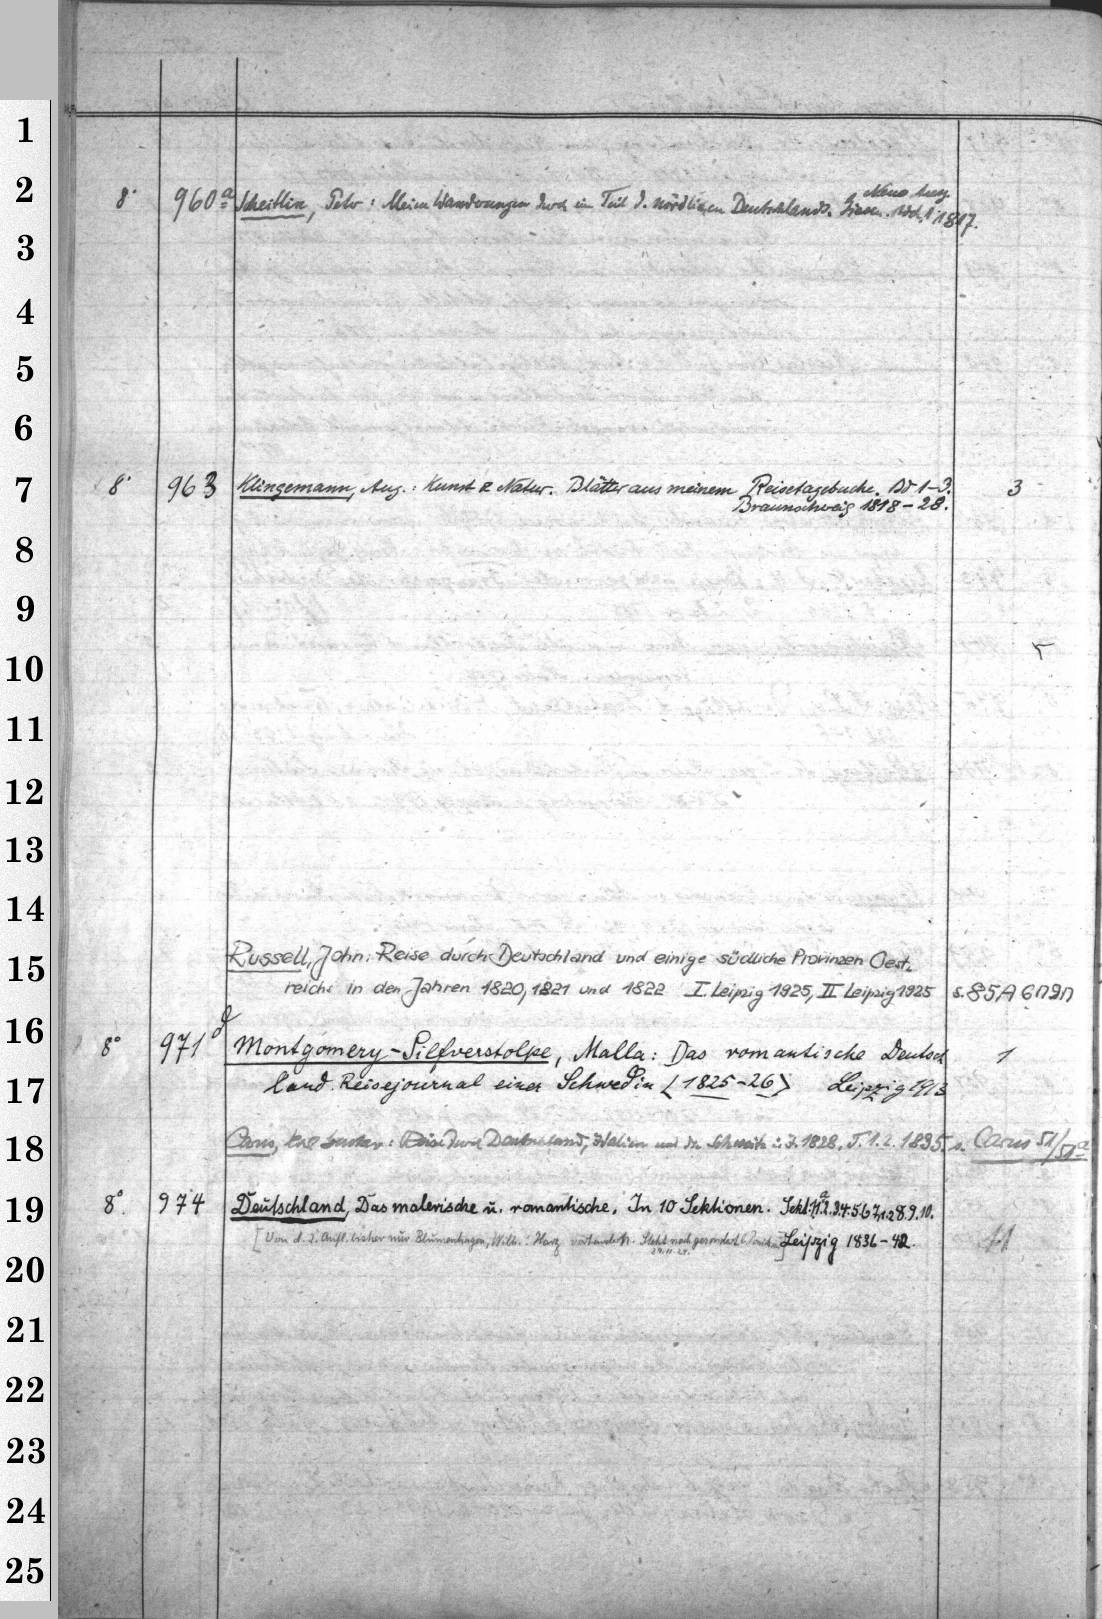 1
2
Neue Ausg.
8° 960a Scheitlin, Peter: Meine Wanderungen durch ein Teil d. nördlichen Deutschlands. Bdch. 1 1817.
3
4
5
6
7
8° 963 Klingemann, Aug.: Kunst & Natur. Blätter aus meinem Reisetagebuche. Bd 1-3. 3
Braunschweig 1818-28.
8
9
10
11
12
13
14
Russell, John: Reise durch Deutschland und einige südliche Provinzen Oest-
15
reichs in den Jahren 1820, 1821 und 1822 I. Leipzig 1925, II Leipzig 1925 s. 85A
16
8° 971d Montgomery-Silfverstolpe, Malla: Das romantische Deutsch 1
17
land. Reisejournal einer Schwedin (1825-26) Leipzig 1913
18
Carus, Deutschland, Italien und die Schweiz i. J. 1828. T. 1.2. 1835. s. Carus 51/51a
19
8° 974 Deutschland, Das malerische u. romantische. In 10 Sektionen. Sekt. 1.1a.2.3.4.5.6.7,1.2.8.9.10.
[Von d. 2. Aufl. bisher nur Blumenhagen, Wilh.: Harz vorhanden. Steht noch gesondert] Leipzig 1836-42. 11
20
21
22
23
24
25